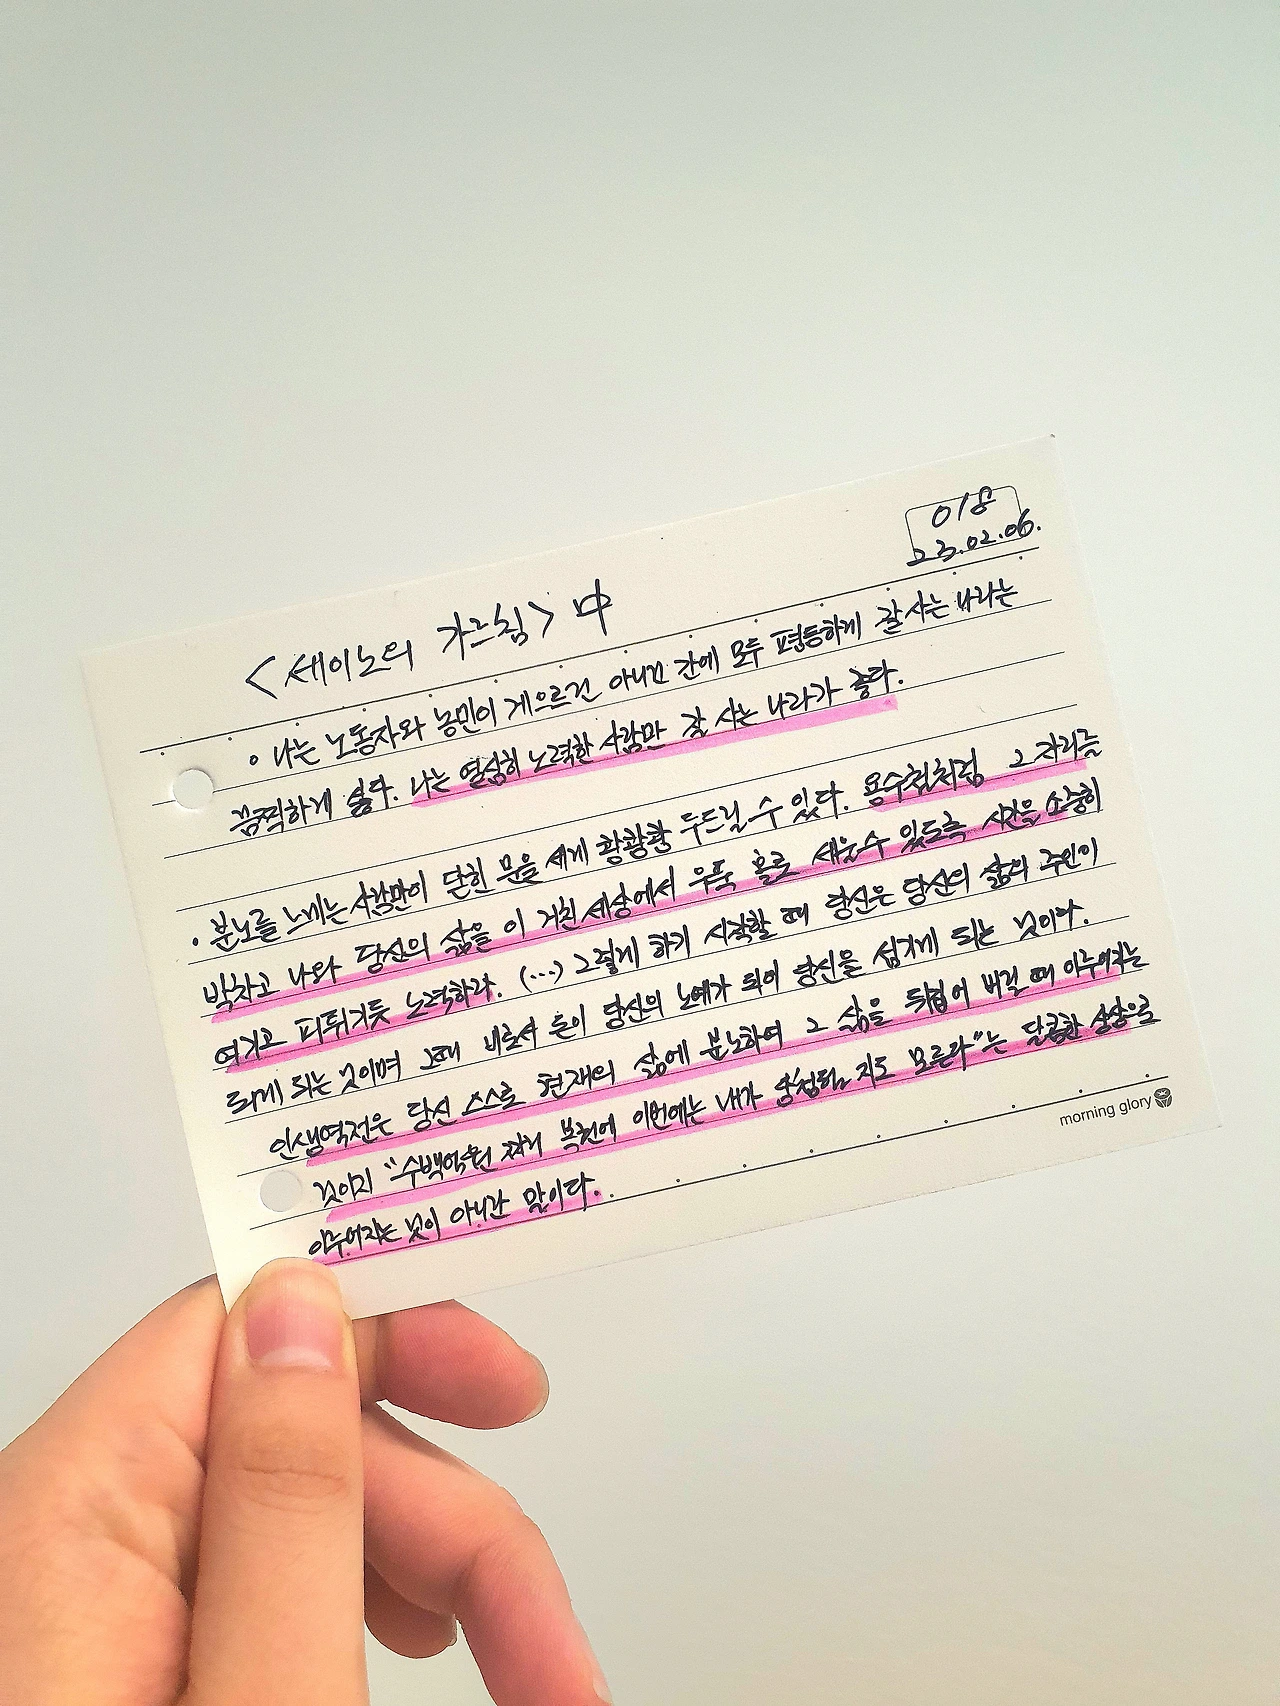 018
23.02.06.
<세이노의 가르침> 中
• 나는 노동자와 농민이 게으르건 아니건 간에 모두 평등하게 잘 사는 나라는
끔찍하게 싫다. 나는 열심히 노력한 사람만 잘 사는 나라가 좋다.
• 분노를 느끼는 사람만이 닫힌 문을 세게 쾅쾅쾅 두드릴 수 있다. 용수철처럼 그 자리를
박차고 나와 당신의 삶을 이 거친 세상에서 우뚝 홀로 세울 수 있도록 시간을 소중히
여기고 피튀기듯 노력하라. (...) 그렇게 하기 시작할 때 당신은 당신의 삶의 주인이
되게 되는 것이며 그때 비로서 돈이 당신의 노예가 되어 당신을 섬기게 되는 것이다.
인생역전은 당신 스스로 현재의 삶에 분노하여 그 삶을 뒤집어 버릴 때 이루어지는
것이지 "수백억원 짜리 복권에 이번에는 내가 당첨될 지도 모른다"는 달콤한 상상으로
이루어지는 것이 아니란 말이다.
morning glory